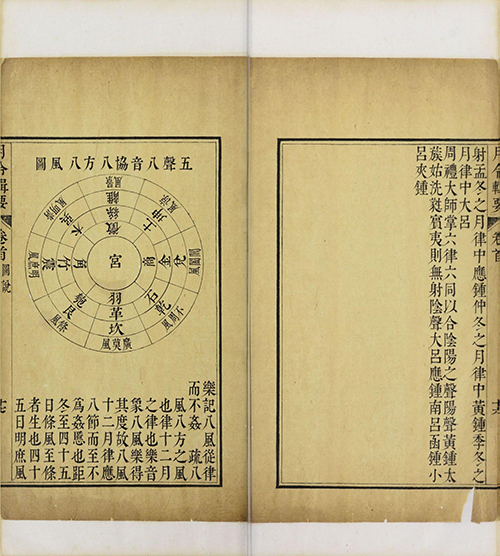 卷首
射孟冬之月律中應鍾仲冬之月律中黃鍾季冬之
月律中大呂
周禮大師掌六律六同以合陰陽之聲陽聲黃鍾太
族姑洗蕤賓夷則無射陰聲大呂應鍾南呂函鍾小
呂夾鍾
五聲八音協八方八風圖
宮
徵絲離景風
土坤涼風
商金兌閶闔風
石乾不周風
羽革坎廣莫風
匏艮條風
角竹震明庶風
木巽清明風
樂記八風從律
而不姦疏八
風八方之風
也律十二月
之律也樂音
象八風樂得
其度故八風
十二月律應
八節而至不
為姦慝也距
冬至四十五
日條風至條
者生也四十
五日明庶風
月令輯要
卷首
圖說